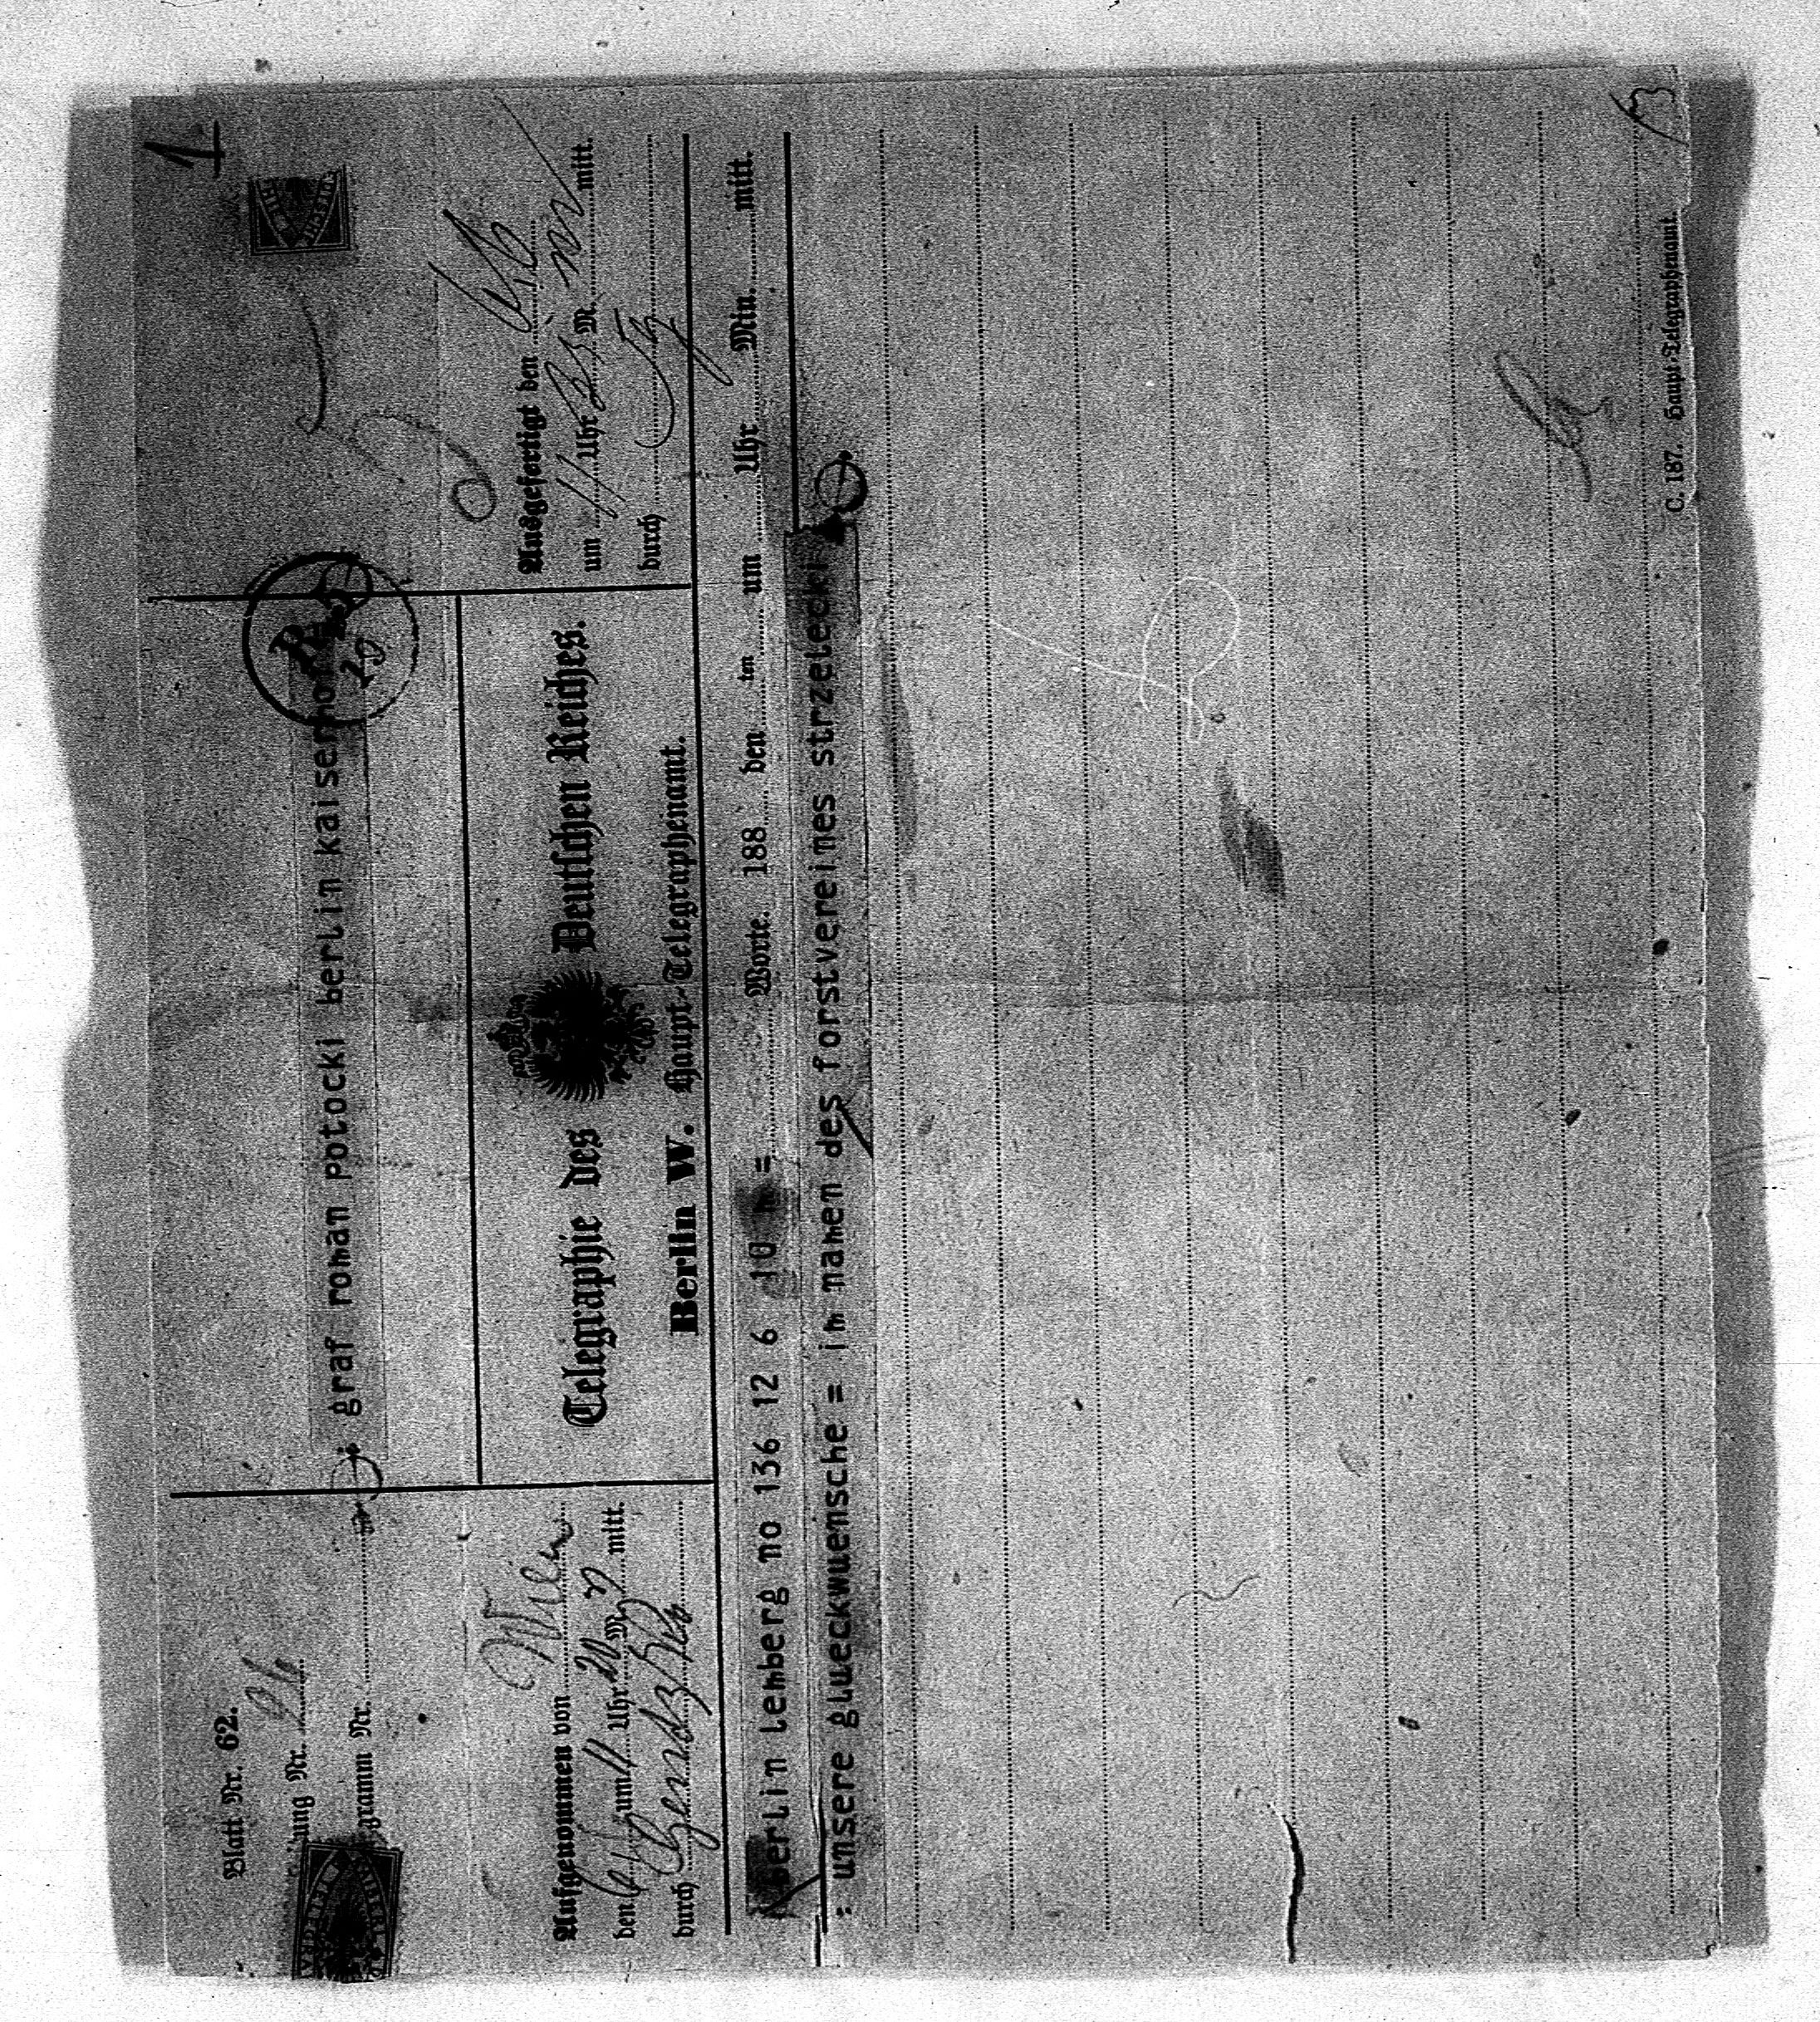 1
Blatt Nr. 62.
ung Nr. 96
gramm Nr.
: graf roman potocki berlin kaiserhof
Telegraphie des Deutschen Reiches.
Berlin W. Haupt-Telegraphenamt.
Aufgenommen von Wien
den um 11 Uhr 20 M. mitt.
durch
Ausgefertigt den
um 11 Uhr M. mitt.
durch
berlin lemberg no 136 12 6 10 m = Worte. 188 den ten um Uhr Min. mitt.
: unsere glueckwuensche = im namen des forstvereines strzelecki
C. 187. Haupt-Telegraphenamt.